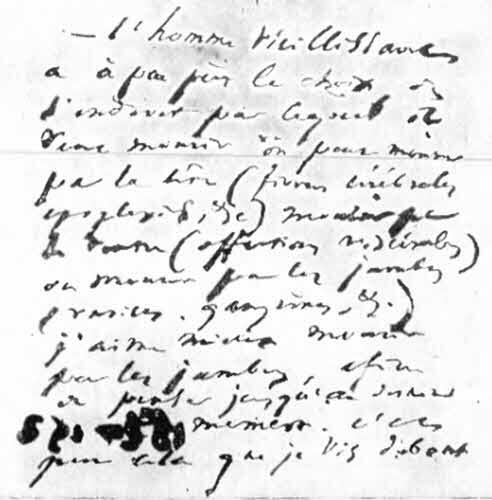 — l'homme vieillissant
a à peu près le choix de
l'endroit par lequel il
veut mourir on peut mourir
par la tête (fièvres cérébrales
apoplexies, &c) mourir par
le ventre (affections viscérales)
ou mourir par les jambes
(varices, gangrènes, &c.)
j'aime mieux mourir
par les jambes, afin
de penser jusqu'au dernier
moment. c'est
pour cela que je vis debout